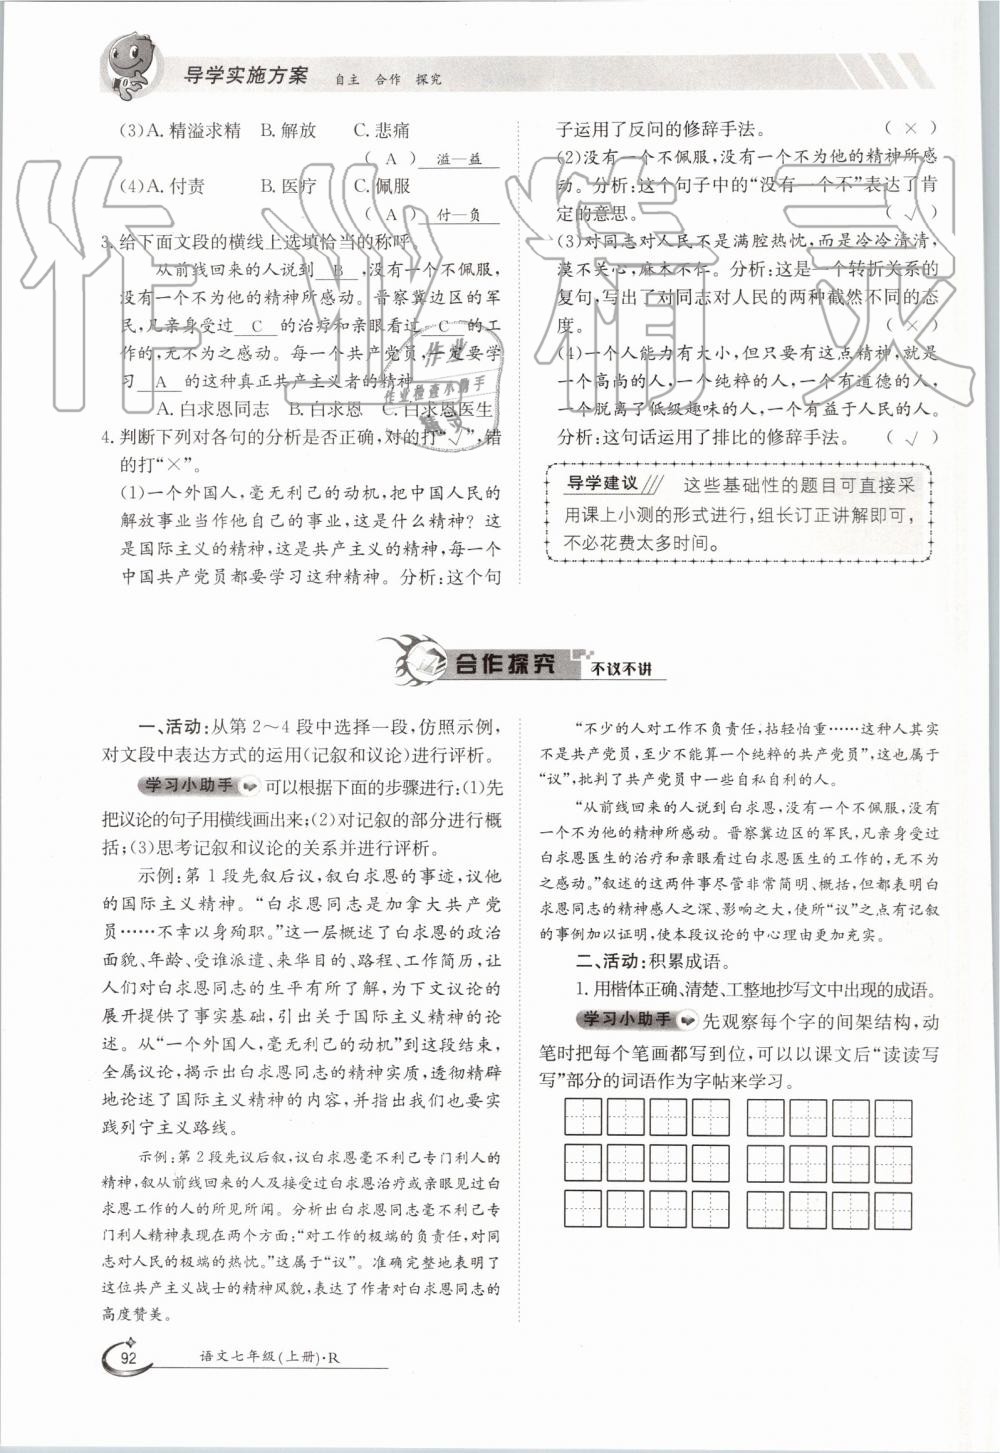 导学实施方案 自主 合作 探究
(3)A. 精溢求精 B. 解放 C. 悲痛
( A ) 溢—益
(4)A. 付责 B. 医疗 C. 佩服
( A ) 付—负
3. 给下面文段的横线上选填恰当的称呼。
从前线回来的人说到 B ,没有一个不佩服,
没有一个不为他的精神所感动。晋察冀边区的军
民,凡亲身受过 C 的治疗和亲眼看过 C 的工
作的,无不为之感动。每一个共产党员,一定要学
习 A 的这种真正共产主义者的精神。
A. 白求恩同志 B. 白求恩 C. 白求恩医生
4. 判断下列对各句的分析是否正确,对的打“√”,错
的打“×”。
(1)一个外国人,毫无利己的动机,把中国人民的
解放事业当作他自己的事业,这是什么精神？这
是国际主义的精神,这是共产主义的精神,每一个
中国共产党员都要学习这种精神。分析:这个句
子运用了反问的修辞手法。 ( × )
(2)没有一个不佩服,没有一个不为他的精神所感
动。分析:这个句子中的“没有一个不”表达了肯
定的意思。 ( √ )
(3)对同志对人民不是满腔热忱,而是冷冷清清,
漠不关心,麻木不仁。分析:这是一个转折关系的
复句,写出了对同志对人民的两种截然不同的态
度。 ( × )
(4)一个人能力有大小,但只要有这点精神,就是
一个高尚的人,一个纯粹的人,一个有道德的人,
一个脱离了低级趣味的人,一个有益于人民的人。
分析:这句话运用了排比的修辞手法。 ( √ )
导学建议 这些基础性的题目可直接采
用课上小测的形式进行,组长订正讲解即可,
不必花费太多时间。
合作探究 不议不讲
一、活动:从第 2～4 段中选择一段,仿照示例,
对文段中表达方式的运用(记叙和议论)进行评析。
学习小助手 可以根据下面的步骤进行:(1)先
把议论的句子用横线画出来;(2)对记叙的部分进行概
括;(3)思考记叙和议论的关系并进行评析。
示例:第 1 段先叙后议,叙白求恩的事迹,议他
的国际主义精神。“白求恩同志是加拿大共产党
员……不幸以身殉职。”这一层概述了白求恩的政治
面貌、年龄、受谁派遣、来华目的、路程、工作简历,让
人们对白求恩同志的生平有所了解,为下文议论的
展开提供了事实基础,引出关于国际主义精神的论
述。从“一个外国人,毫无利己的动机”到这段结束,
全属议论,揭示出白求恩同志的精神实质,透彻精辟
地论述了国际主义精神的内容,并指出我们也要实
践列宁主义路线。
示例:第 2 段先议后叙,议白求恩毫不利己专门利人的
精神,叙从前线回来的人及接受过白求恩治疗或亲眼见过白
求恩工作的人的所见所闻。分析出白求恩同志毫不利己专
门利人精神表现在两个方面:“对工作的极端的负责任,对同
志对人民的极端的热忱。”这属于“议”。准确完整地表明了
这位共产主义战士的精神风貌,表达了作者对白求恩同志的
高度赞美。
“不少的人对工作不负责任,拈轻怕重……这种人其实
不是共产党员,至少不能算一个纯粹的共产党员”,这也属于
“议”,批判了共产党员中一些自私自利的人。
“从前线回来的人说到白求恩,没有一个不佩服,没有
一个不为他的精神所感动。晋察冀边区的军民,凡亲身受过
白求恩医生的治疗和亲眼看过白求恩医生的工作的,无不为
之感动。”叙述的这两件事尽管非常简明、概括,但都表明白
求恩同志的精神感人之深、影响之大,使所“议”之点有记叙
的事例加以证明,使本段议论的中心理由更加充实。
二、活动:积累成语。
1. 用楷体正确、清楚、工整地抄写文中出现的成语。
学习小助手 先观察每个字的间架结构,动
笔时把每个笔画都写到位,可以以课文后“读读写
写”部分的词语作为字帖来学习。
92 语文七年级(上册)·R
作业精灵
作业
作业检查小助手
精灵